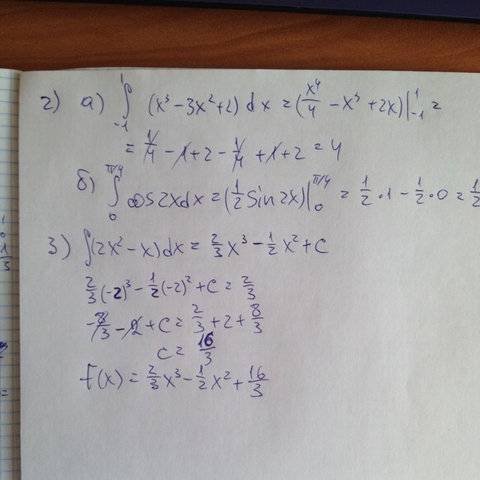 2) а) ∫₋₁¹ (x³ - 3x² + 2) dx = (x⁴/4 - x³ + 2x)|₋₁¹ =
= 1/4 - 1 + 2 - 1/4 + 1 + 2 = 4
б) ∫₀^(π/4) cos2xdx = (1/2 sin 2x)|₀^(π/4) = 1/2 · 1 - 1/2 · 0 = 1/2
3) ∫(2x² - x)dx = 2/3 x³ - 1/2 x² + C
2/3 (-2)³ - 1/2 (-2)² + C = 2/3
-8/3 - 2 + C = 2/3 + 2 + 8/3
C = 16/3
f(x) = 2/3 x³ - 1/2 x² + 16/3